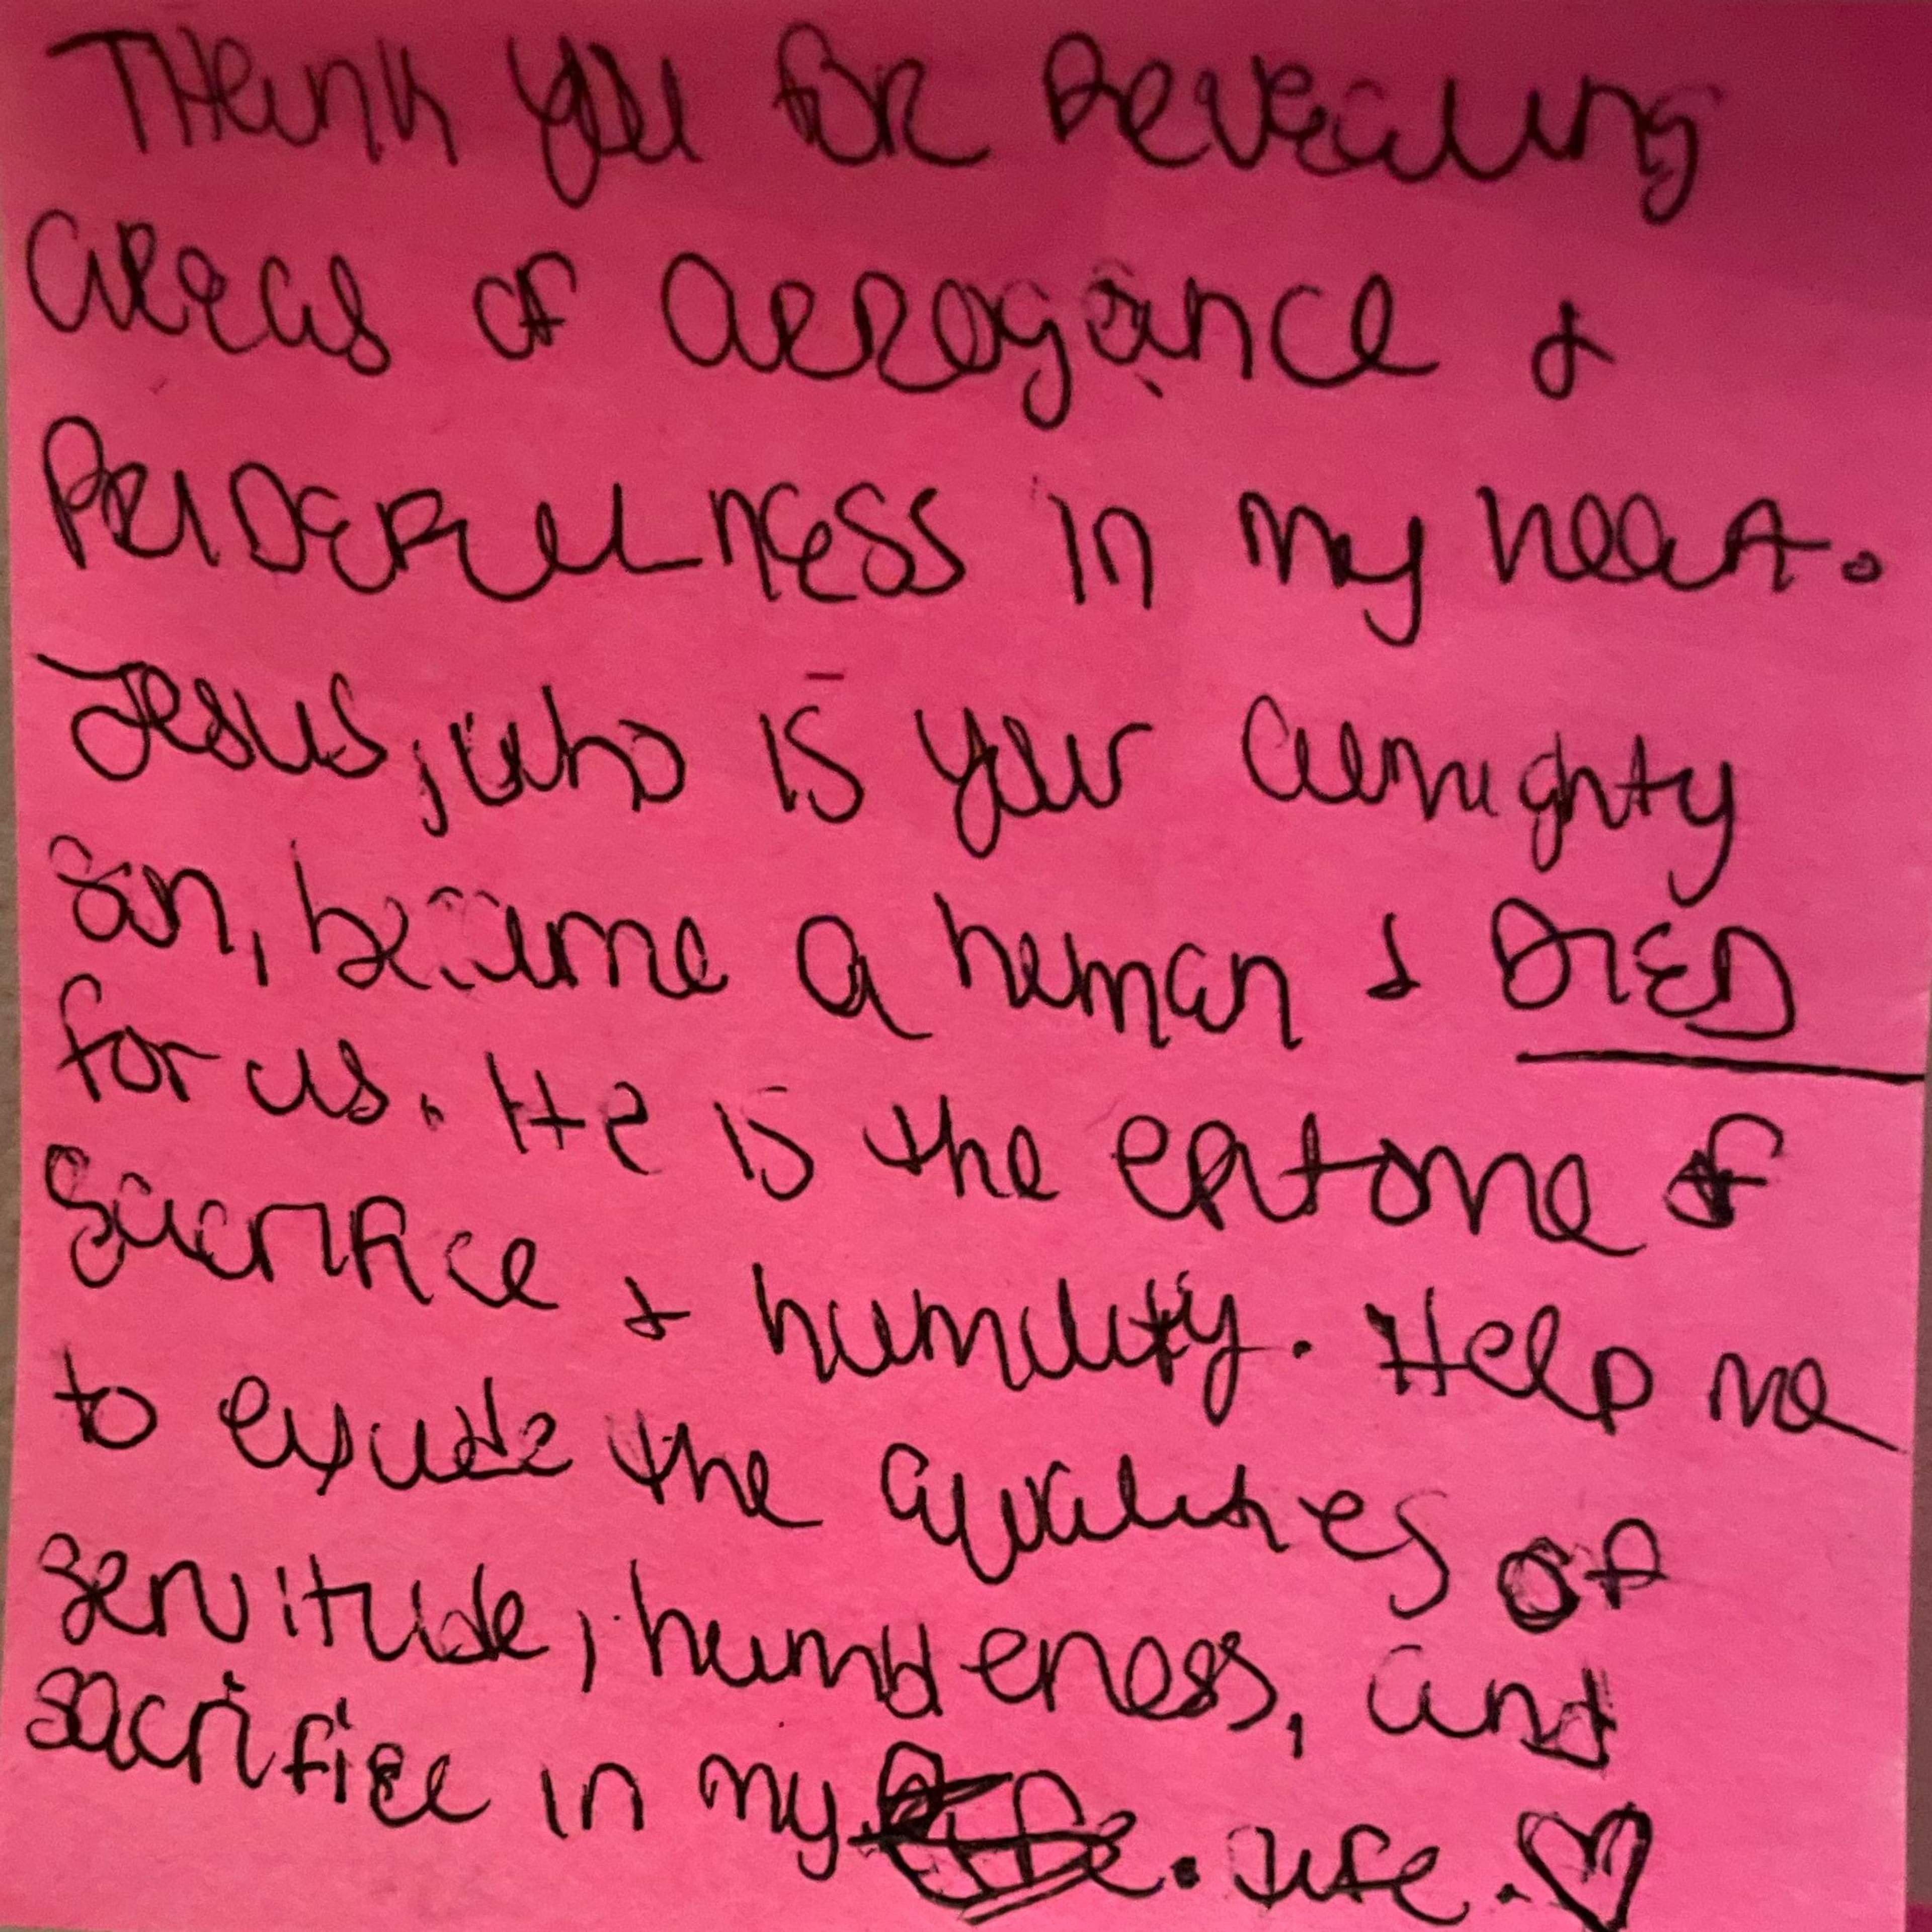 Thank you for revealing
areas of arrogance &
PRIDEFULness in my heart.
Jesus, who is your almighty
son, became a human & DIED
for us. He is the epitome of
sacrifice & humility. Help me
to exude the qualities of
servitude, humbleness, and
sacrifice in my life. ♡